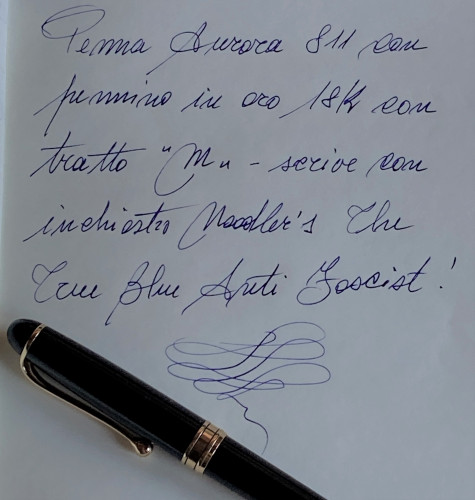 Penna Aurora 811 con
pennino in oro 18K con
tratto "M" - scrive con
inchiostro Noodler's The
True Blue Anti Fascist!